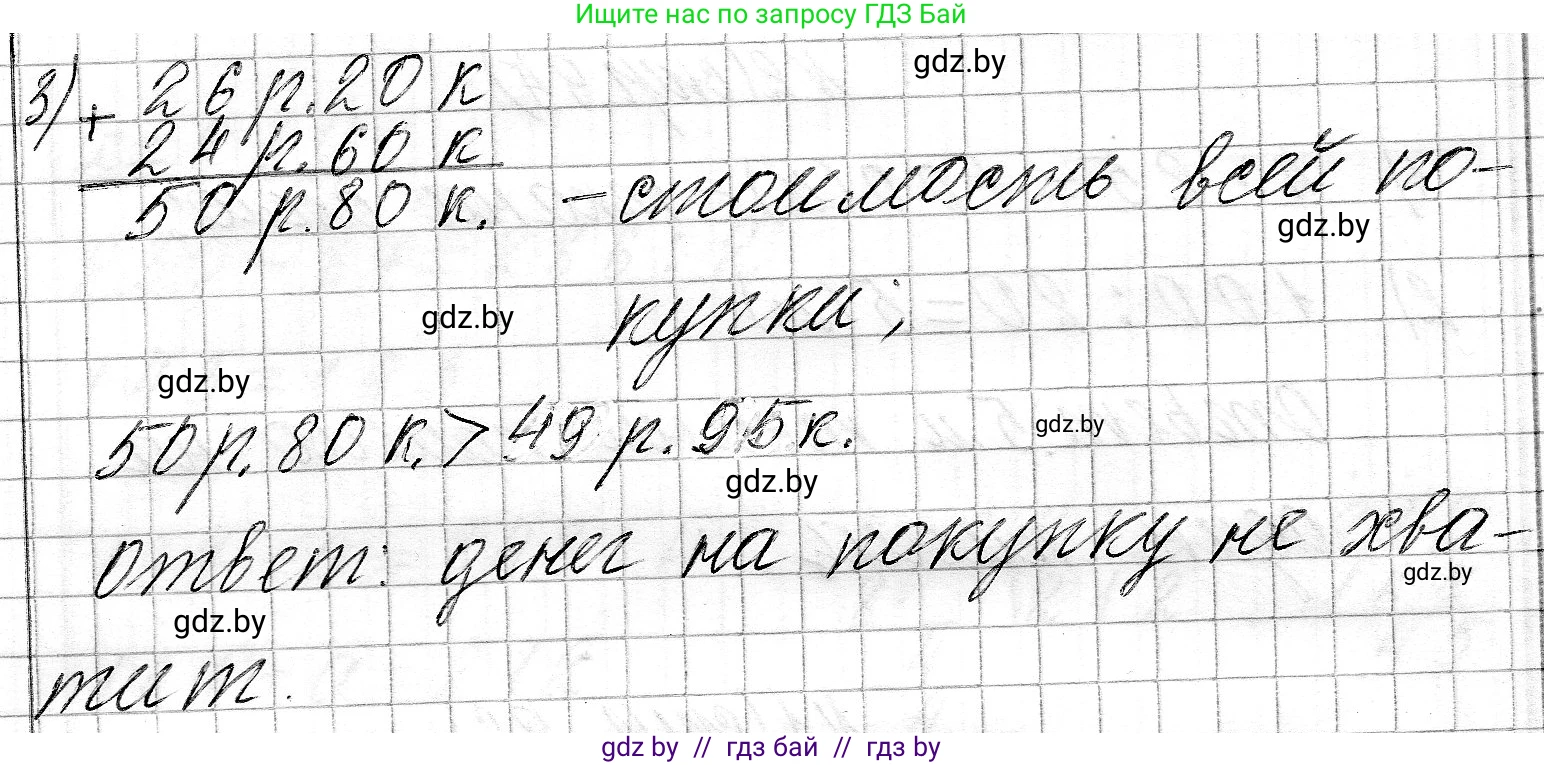 Ищите нас по запросу ГДЗ Бай
gdz.by
3) + 26 р. 20 к
24 р. 60 к
50 р. 80 к. – стоимость всей по-
gdz.by
купки;
gdz.by
gdz.by
50 р. 80 к. > 49 р. 95 к.
gdz.by
gdz.by
ответ: денег на покупку не хва-
gdz.by
gdz.by
тит.
gdz by // гдз бай // гдз by